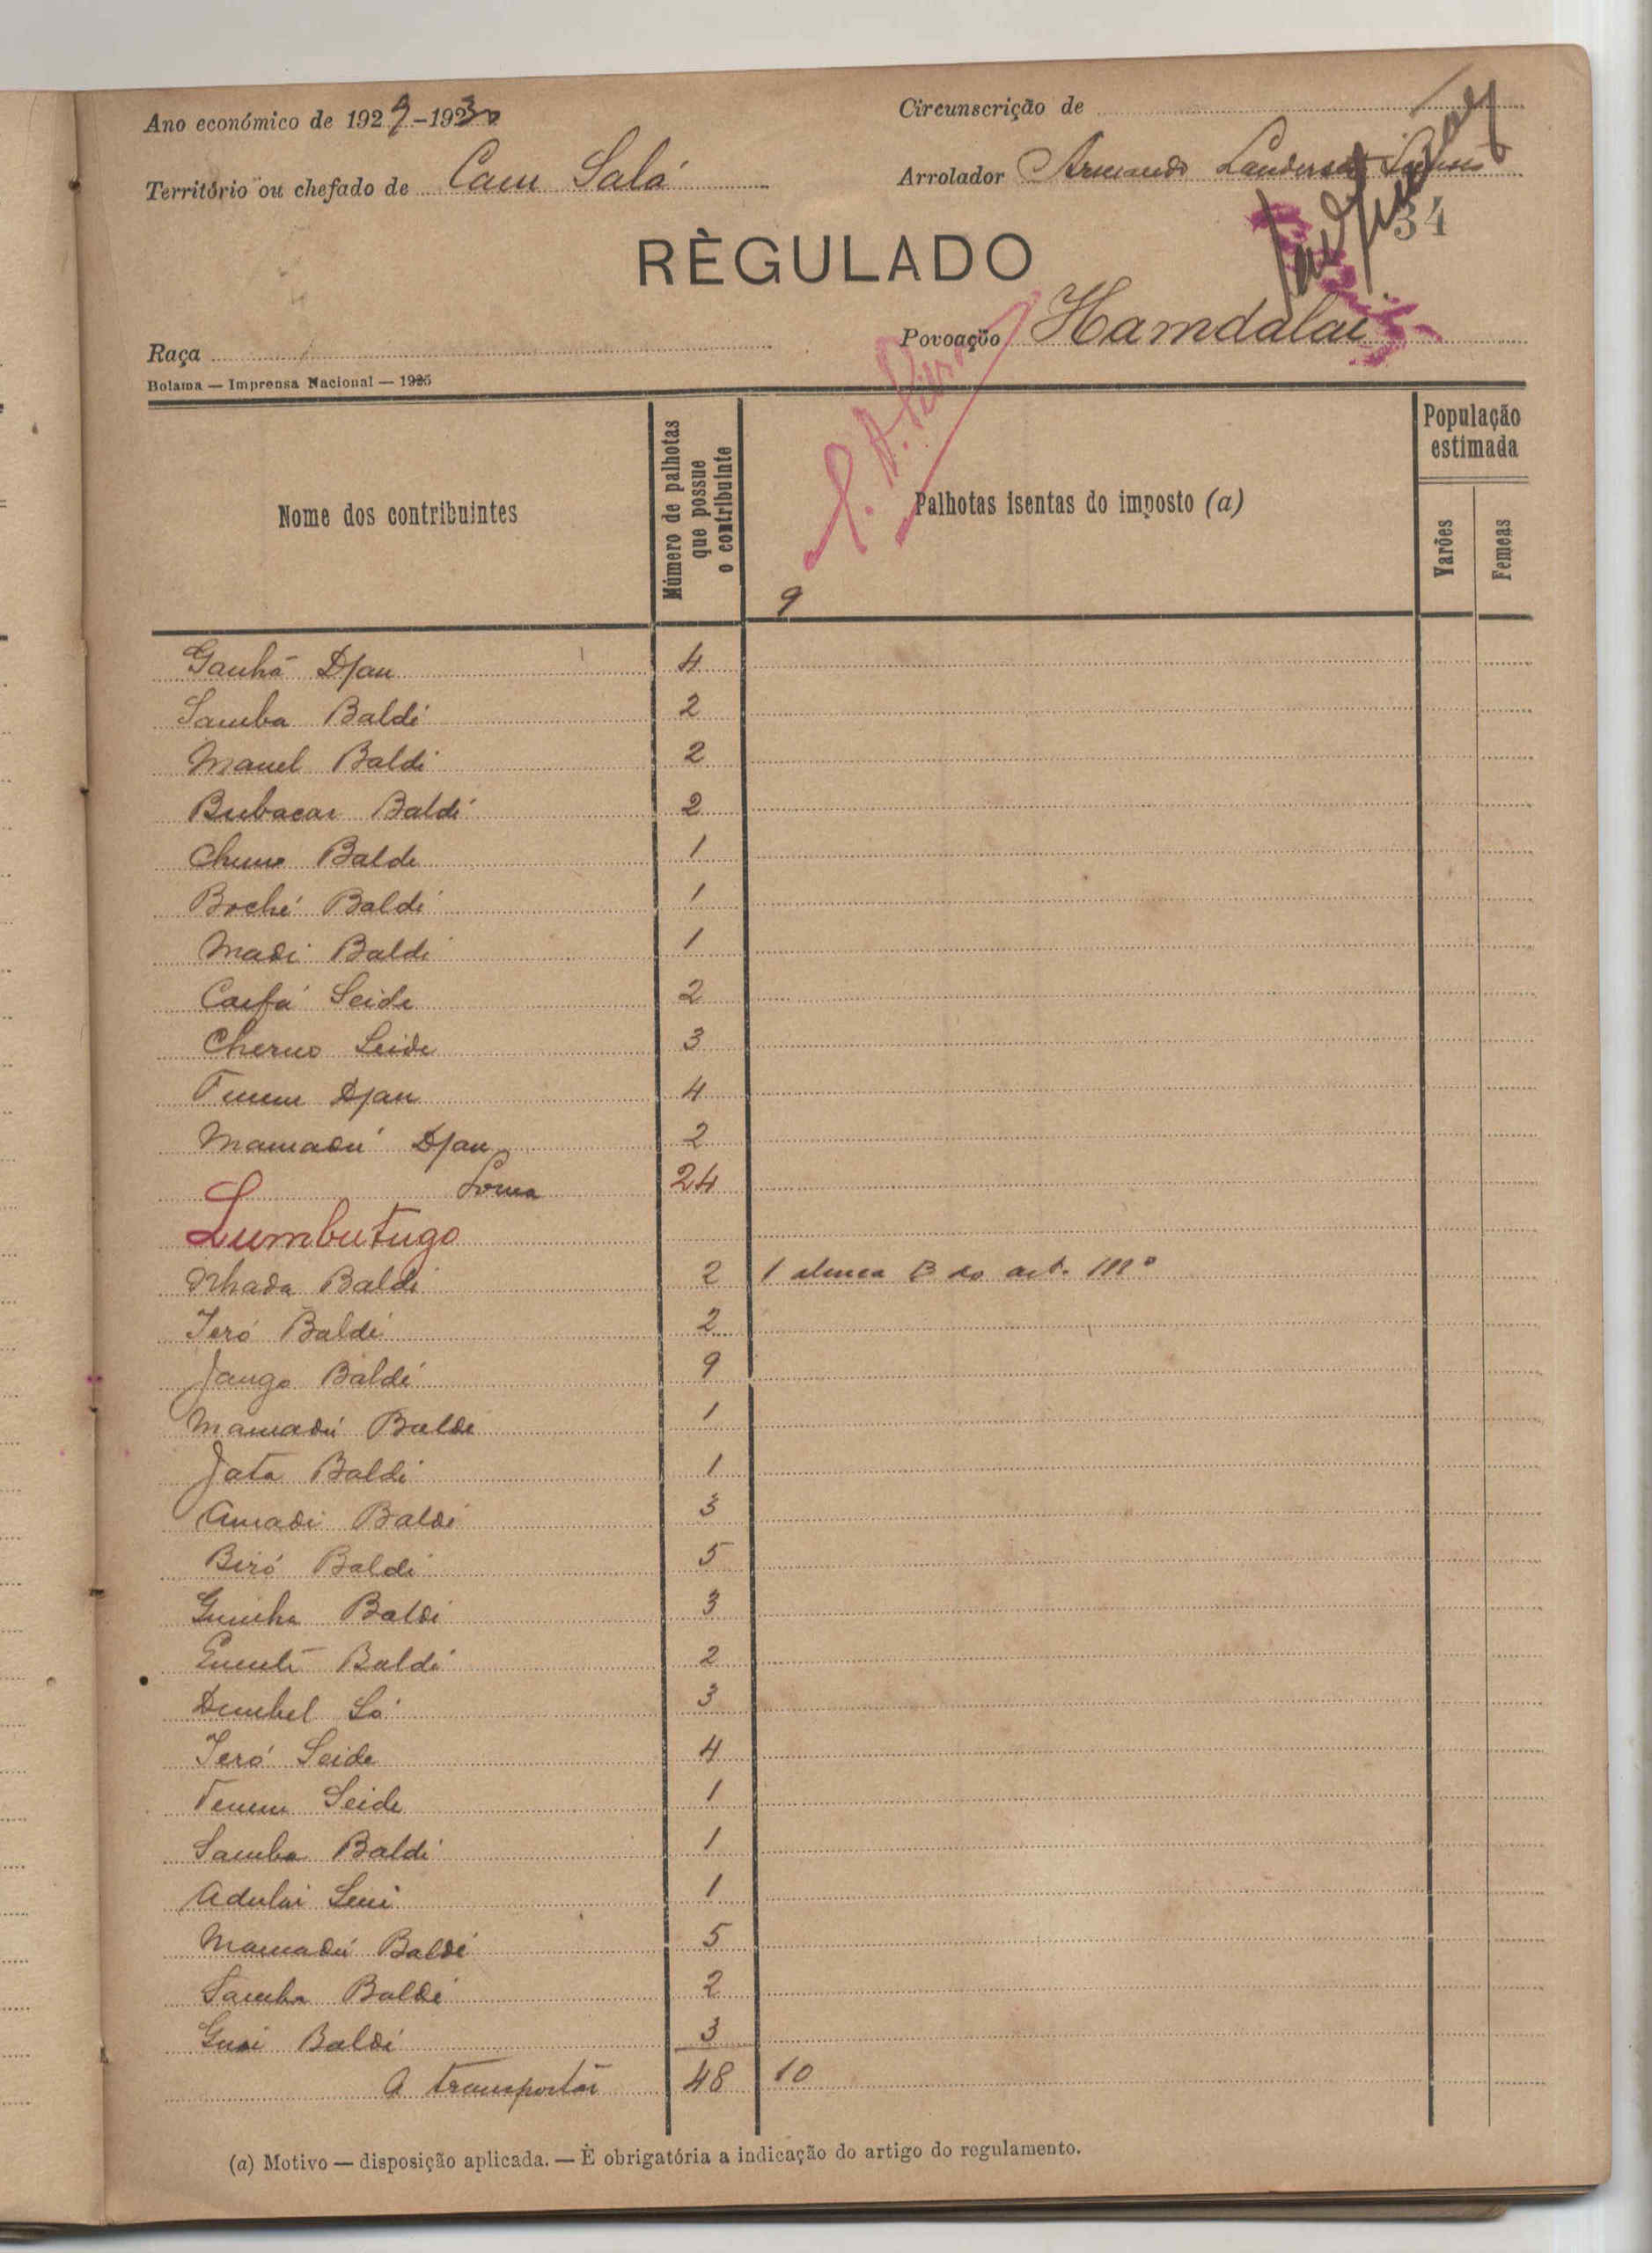 Ano económico de 1929-1930
Circunscrição de
Território ou chefado de Cam Salá
Arrolador Armando
34
RÈGULADO
Povoação Hamdalai
Raça
Bolama — Imprensa Nacional — 1925
Nome dos contribuintes
Número de palhotas que possue o contribuinte
Palhotas isentas do imposto (a)
População estimada
Varões
Femeas
9
Djau 4
Samba Baldé 2
Manel Baldé 2
Bubacar Baldé 2
Baldé 1
Boché Baldé 1
Madi Baldé 1
Seide 2
Cherno Seide 3
Djau 4
Mamadú Djau 2
Soma 24
Lumbutugo
Baldé 2 1 alinea B do art.
Jeró Baldé 2
Jango Baldé 9
Mamadú Baldé 1
Jata Baldé 1
Amadi Baldé 3
Biró Baldé 5
Baldé 3
Baldé 2
Dembel Só 3
Jeró Seide 4
Seide 1
Samba Baldé 1
Adulai 1
Mamadú Baldé 5
Samba Baldé 2
Baldé 3
A transportar 48 10
(a) Motivo — disposição aplicada. — È obrigatória a indicação do artigo do regulamento.